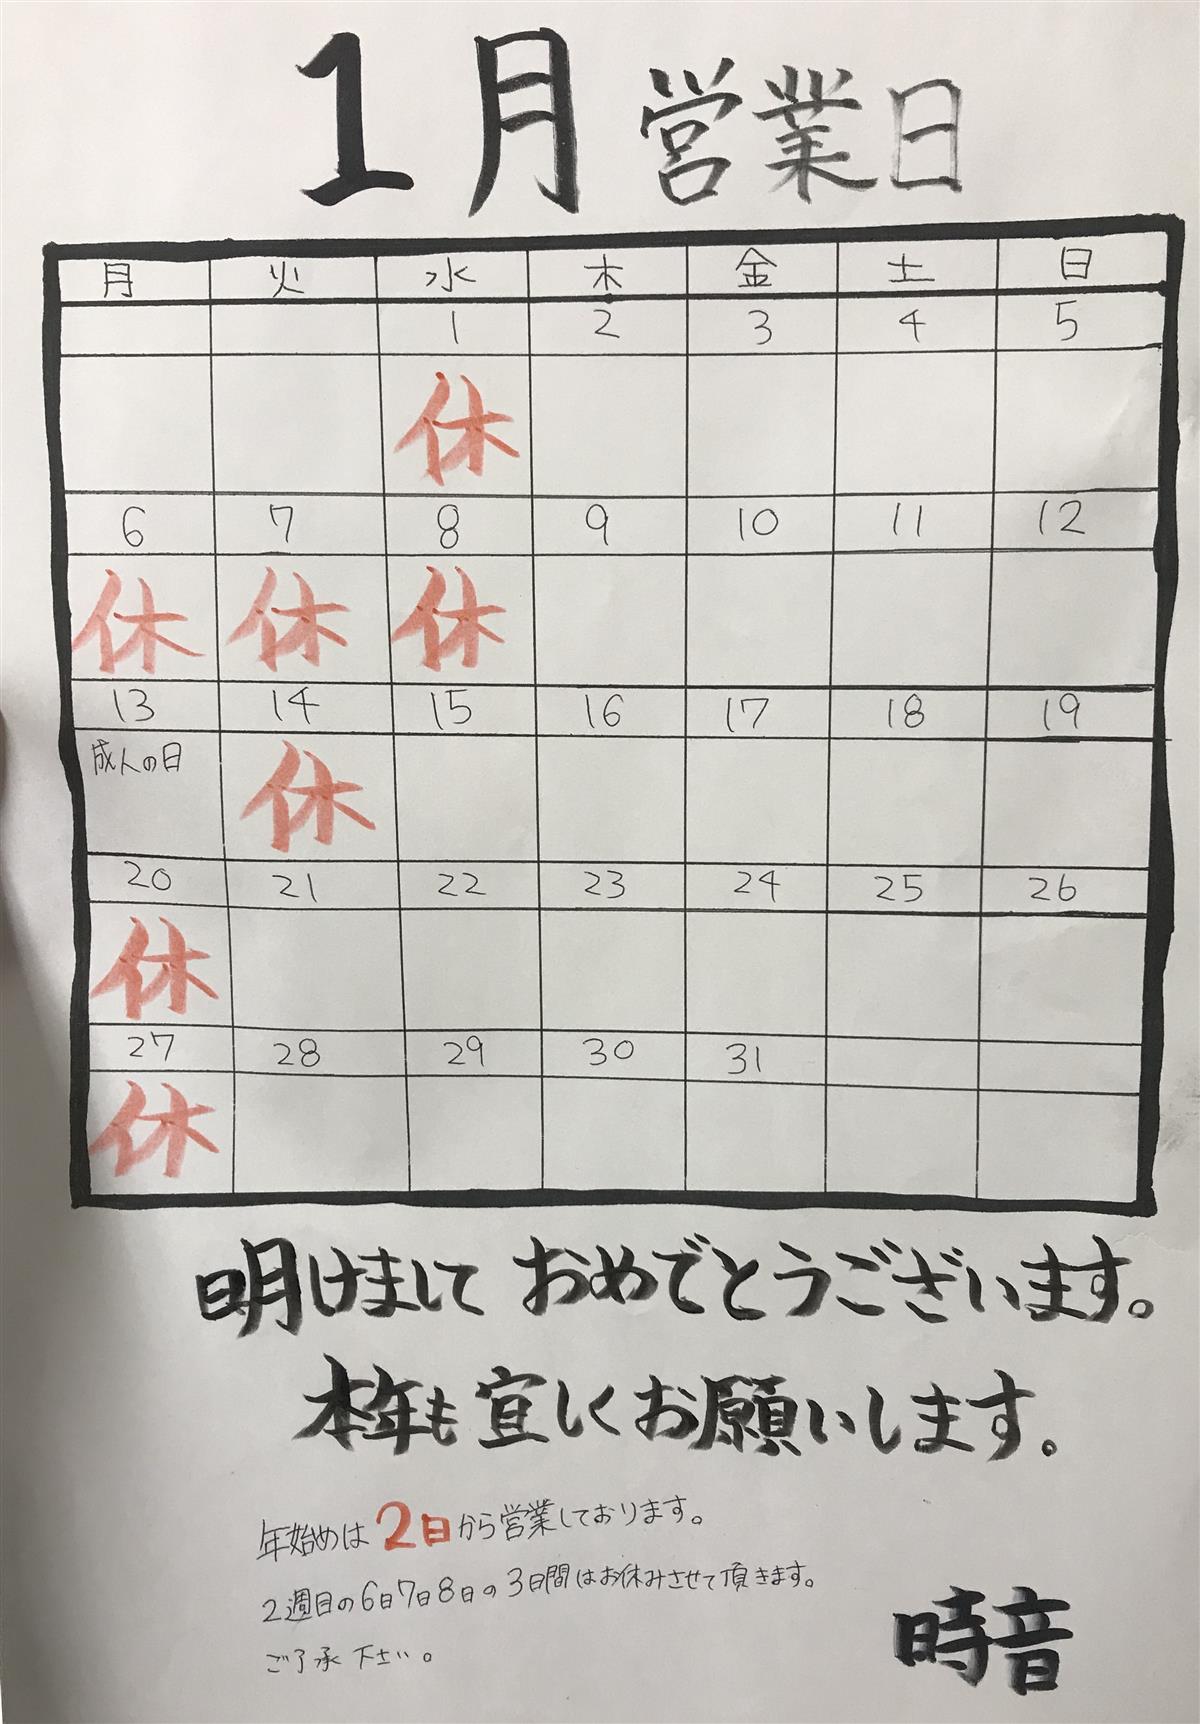 1月営業日
月 火 水 木 金 土 日
1 2 3 4 5
休
6 7 8 9 10 11 12
休 休 休
13 14 15 16 17 18 19
成人の日 休
20 21 22 23 24 25 26
休
27 28 29 30 31
休
明けまして おめでとうございます。
本年も宜しくお願いします。
年始めは2日から営業しております。
2週目の6日7日8日の3日間はお休みさせて頂きます。
ご了承下さい。
時音